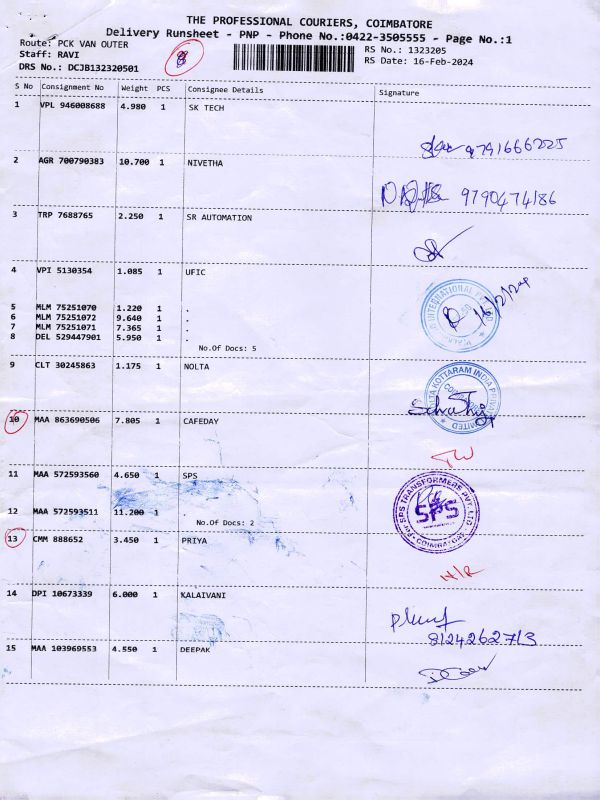 THE PROFESSIONAL COURIERS, COIMBATORE
Delivery Runsheet - PNP - Phone No.:0422-3505555 - Page No.:1
Route: PCK VAN OUTER
Staff: RAVI
DRS No.: DCJB132320501
8
RS No.: 1323205
RS Date: 16-Feb-2024
S No Consignment No Weight PCS Consignee Details Signature
1 VPL 946008688 4.980 1 SK TECH
9791666225
2 AGR 700790383 10.700 1 NIVETHA
9790474186
3 TRP 7688765 2.250 1 SR AUTOMATION
4 VPI 5130354 1.085 1 UFIC
INTERNATIONAL
16/2/24
5 MLM 75251070 1.220 1 .
6 MLM 75251072 9.640 1 .
7 MLM 75251071 7.365 1 .
8 DEL 529447901 5.950 1 .
No.Of Docs: 5
9 CLT 30245863 1.175 1 NOLTA
KOTTARAM INDIA PRIVATE LIMITED
10 MAA 863690506 7.805 1 CAFEDAY
11 MAA 572593560 4.650 1 SPS
SPS TRANSFORMERS PVT. LTD.
SPS
COIMBATORE
12 MAA 572593511 11.200 1 .
No.Of Docs: 2
13 CMM 888652 3.450 1 PRIYA
N/R
14 DPI 10673339 6.000 1 KALAIVANI
8124262713
15 MAA 103969553 4.550 1 DEEPAK